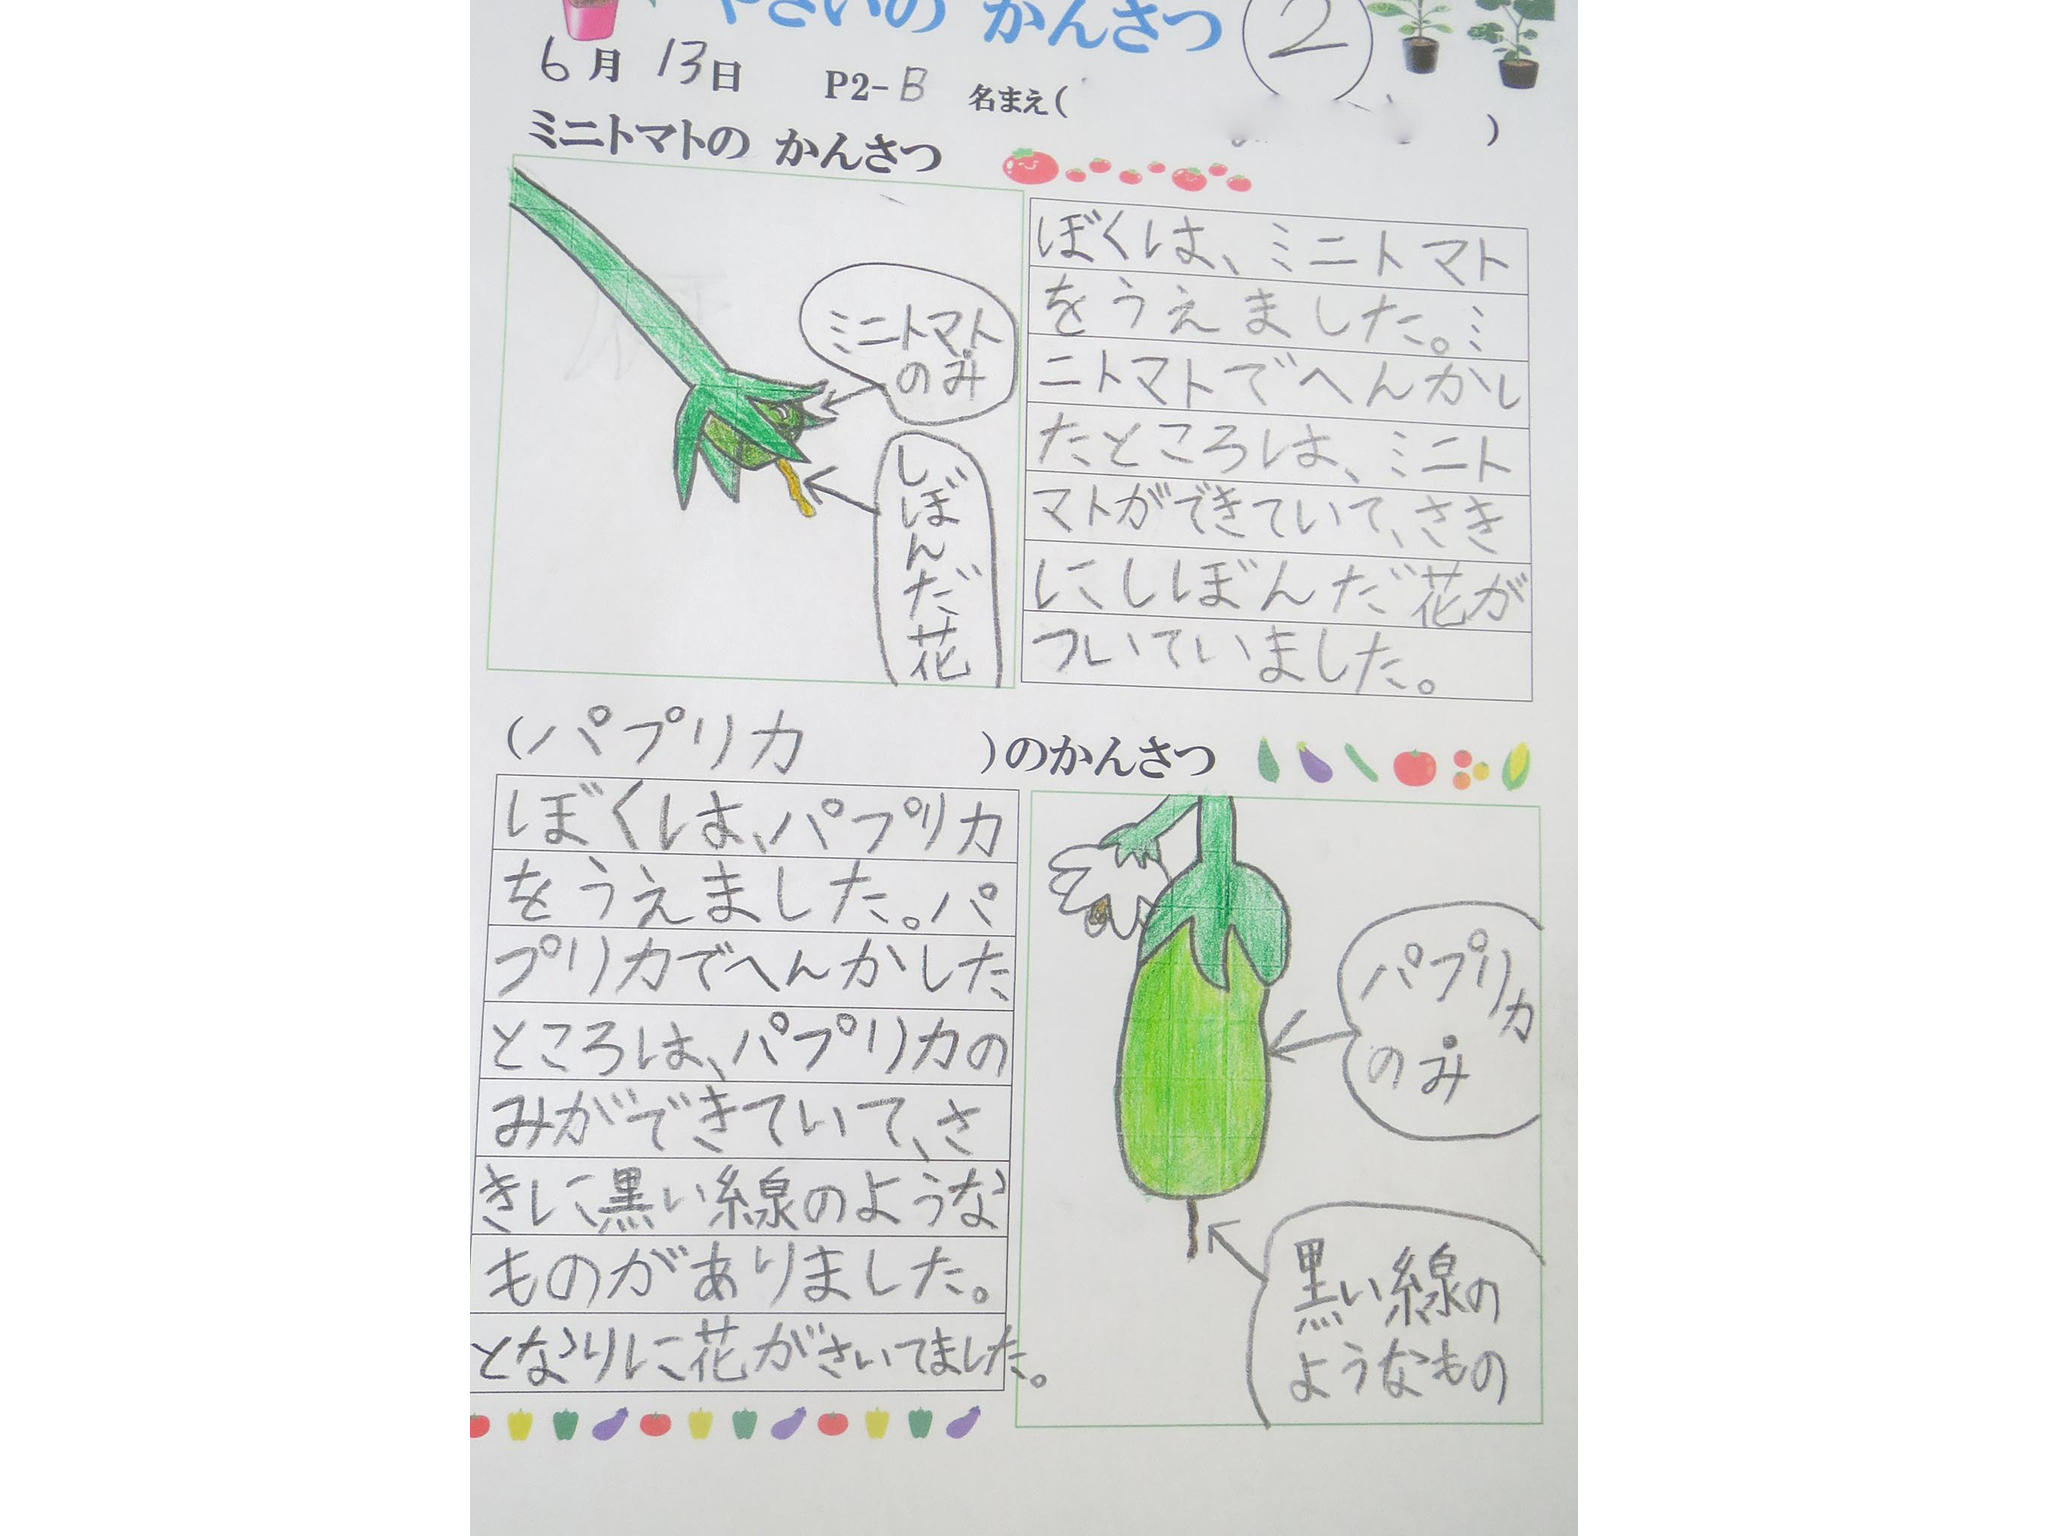 やさいの かんさつ ②
6月 13日 P2-B 名まえ( )
ミニトマトの かんさつ
ミニトマト
のみ
しぼんだ花
ぼくは、ミニトマト
をうえました。ミ
ニトマトでへんかし
たところは、ミニト
マトができていて、さき
にしぼんだ花が
ついていました。
(パプリカ )のかんさつ
ぼくは、パプリカ
をうえました。パ
プリカでへんかした
ところは、パプリカの
みができていて、さ
きに黒い線のような
ものがありました。
となりに花がさいてました。
パプリカ
のみ
黒い線の
ようなもの